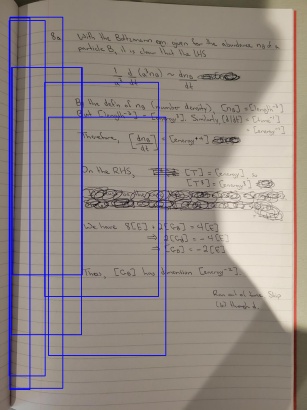 8a With the Boltzmann eqn given for the abundance n_B of a
particle B, it is clear that the LHS
1/a³ d/dt (a³n_B) ~ dn_B/dt
By the defn of n_B (number density), [n_B] = [length⁻³]
But [length⁻¹] = [energy]. Similarly,
Therefore, [dn_B/dt] = [energy⁴]
On the RHS, [T] = [energy]
We have 8[E] + 2[G_B] = 4[E]
⇒ 2[G_B] = -4[E]
⇒ [G_B] = -2[E]
Thus, [G_B] has dimension [energy⁻²]
Ran out of time. Skip
(b) through d.